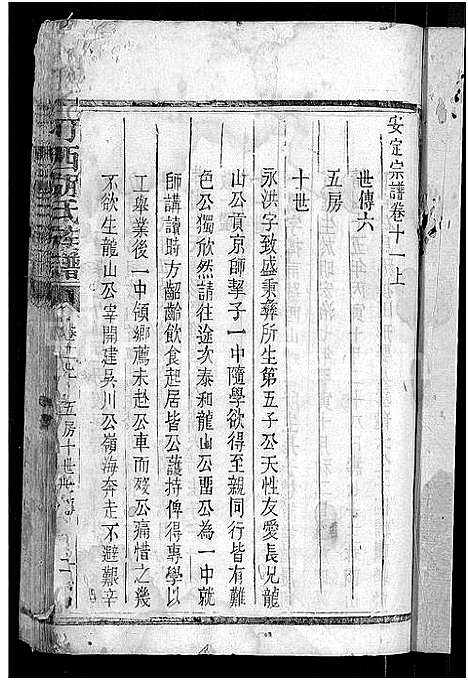 安定宗譜卷十一上
世傳六
五房
十世
永洪字致盛秉彝所生第五子公天性友愛長兄龍
山公貢京師挈子一中隨學欲得至親同行皆有難
色公獨欣然請往途次泰和龍山公畱公為一中就
師講讀時方齠齡飲食起居皆公護持俾得專學以
工舉業後一中領鄉薦未赴公車而殁公痛惜之幾
不欲生龍山公宰開建吳川公嶺海奔走不避艱辛
西胡氏族譜
五房十世